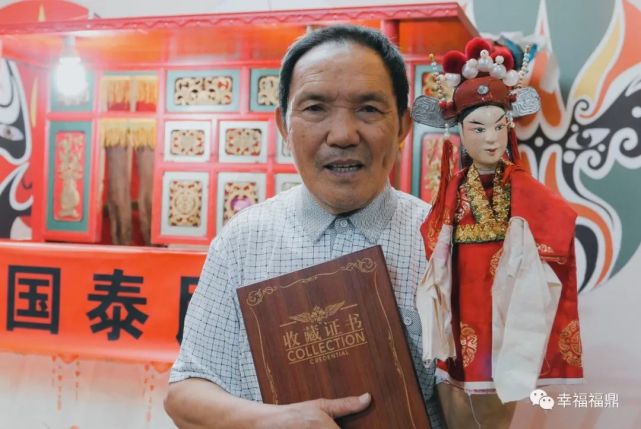 国泰
收藏证书
COLLECTION
CREDENTIAL
幸福福鼎